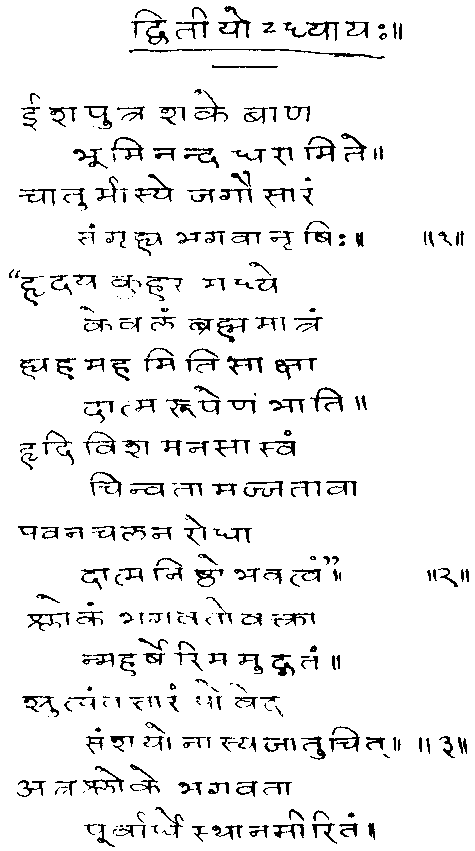 द्वितीयोऽध्यायः॥
ईशपुत्र शके बाण
भूमिनन्द धरामिते॥
चातुर्मास्ये जगौसारं
संगृह्य भगवानृषिः॥ ॥१॥
“हृदय कुहर मध्ये
केवलं ब्रह्ममात्रं
ह्यहमहमिति साक्षा
दात्मरूपेणं भाति॥
हृदि विश मनसा स्वं
चिन्वता मज्जतावा
पवनचलन रोधा
दात्मनिष्ठो भवत्वं”॥ ॥२॥
श्लोकं भगवतो वक्त्रा
न्महर्षेरिममुद्गतं॥
श्रुत्यंतसारं यो वेद
संशयो नास्य जातुचित्॥ ॥३॥
अत्रश्लोके भगवता
पूर्वार्धेस्थानमीरितं॥